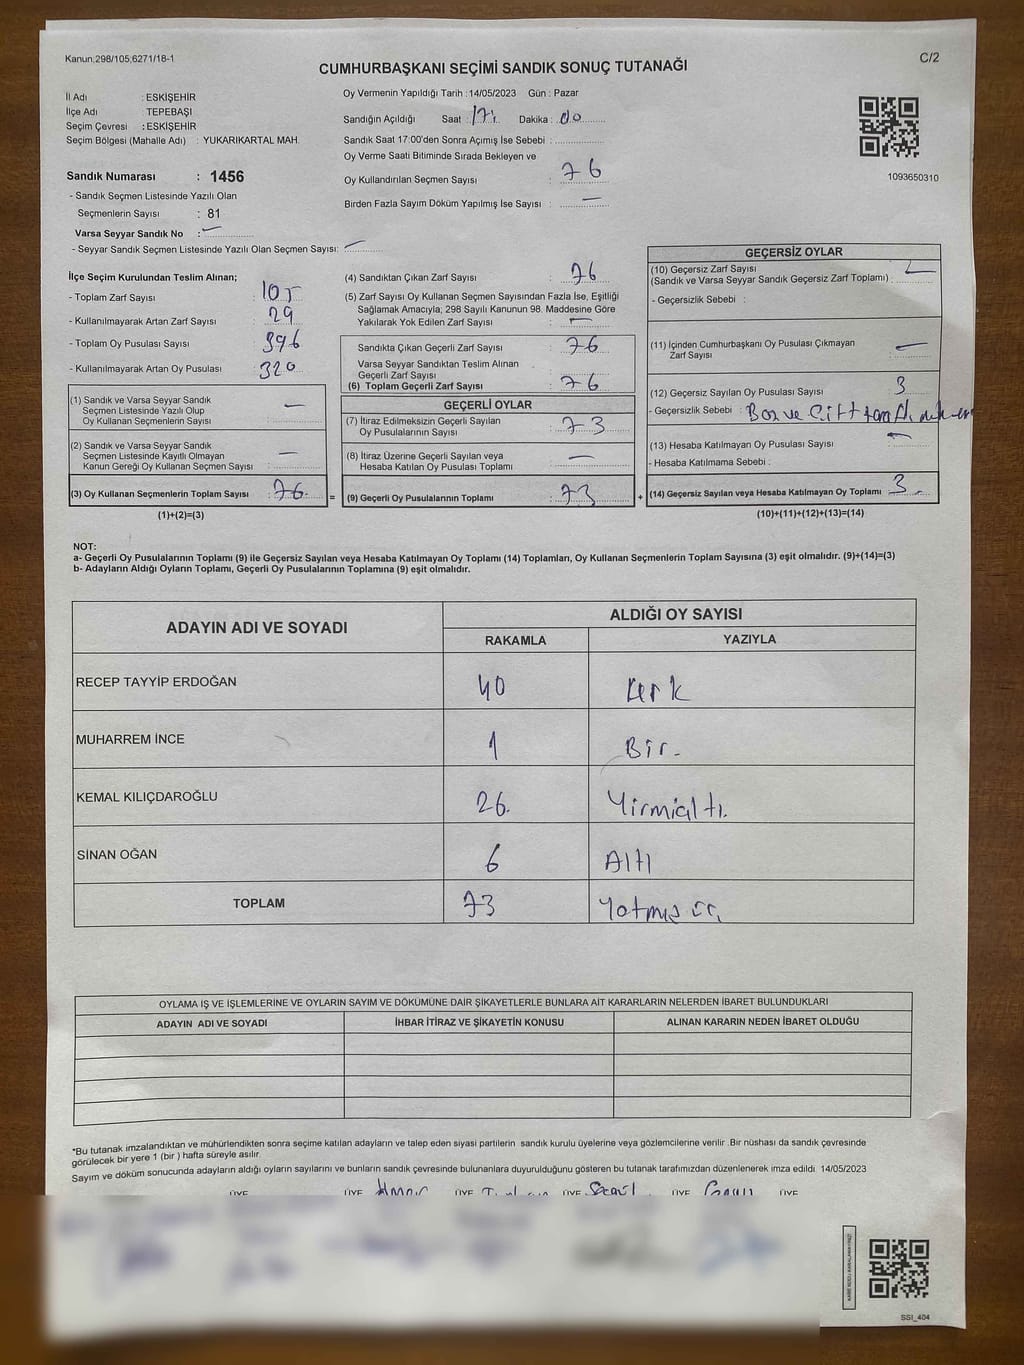 Kanun:298/105;6271/18-1
C/2
CUMHURBAŞKANI SEÇİMİ SANDIK SONUÇ TUTANAĞI
İl Adı : ESKİŞEHİR
İlçe Adı : TEPEBAŞI
Seçim Çevresi : ESKİŞEHİR
Seçim Bölgesi (Mahalle Adı) : YUKARIKARTAL MAH.
Sandık Numarası : 1456
- Sandık Seçmen Listesinde Yazılı Olan
Seçmenlerin Sayısı : 81
Varsa Seyyar Sandık No : —
- Seyyar Sandık Seçmen Listesinde Yazılı Olan Seçmen Sayısı: —
Oy Vermenin Yapıldığı Tarih : 14/05/2023 Gün : Pazar
Sandığın Açıldığı Saat : 17 Dakika : 00
Sandık Saat 17:00'den Sonra Açımış İse Sebebi :
Oy Verme Saati Bitiminde Sırada Bekleyen ve
Oy Kullandırılan Seçmen Sayısı : 76
Birden Fazla Sayım Döküm Yapılmış İse Sayısı : —
1093650310
İlçe Seçim Kurulundan Teslim Alınan;
- Toplam Zarf Sayısı : 105
- Kullanılmayarak Artan Zarf Sayısı : 29
- Toplam Oy Pusulası Sayısı : 396
- Kullanılmayarak Artan Oy Pusulası : 320
(1) Sandık ve Varsa Seyyar Sandık
Seçmen Listesinde Yazılı Olup
Oy Kullanan Seçmenlerin Sayısı : —
(2) Sandık ve Varsa Seyyar Sandık
Seçmen Listesinde Kayıtlı Olmayan
Kanun Gereği Oy Kullanan Seçmen Sayısı : —
(3) Oy Kullanan Seçmenlerin Toplam Sayısı : 76 =
(1)+(2)=(3)
(4) Sandıktan Çıkan Zarf Sayısı : 76
(5) Zarf Sayısı Oy Kullanan Seçmen Sayısından Fazla İse, Eşitliği
Sağlamak Amacıyla; 298 Sayılı Kanunun 98. Maddesine Göre
Yakılarak Yok Edilen Zarf Sayısı : —
Sandıkta Çıkan Geçerli Zarf Sayısı : 76
Varsa Seyyar Sandıktan Teslim Alınan
Geçerli Zarf Sayısı :
(6) Toplam Geçerli Zarf Sayısı : 76
GEÇERLİ OYLAR
(7) İtiraz Edilmeksizin Geçerli Sayılan
Oy Pusulalarının Sayısı : 73
(8) İtiraz Üzerine Geçerli Sayılan veya
Hesaba Katılan Oy Pusulası Toplamı : —
(9) Geçerli Oy Pusulalarının Toplamı : 73 +
GEÇERSİZ OYLAR
(10) Geçersiz Zarf Sayısı
(Sandık ve Varsa Seyyar Sandık Geçersiz Zarf Toplamı) : —
- Geçersizlik Sebebi :
(11) İçinden Cumhurbaşkanı Oy Pusulası Çıkmayan
Zarf Sayısı : —
(12) Geçersiz Sayılan Oy Pusulası Sayısı : 3
- Geçersizlik Sebebi : Boş ve Çift
(13) Hesaba Katılmayan Oy Pusulası Sayısı : —
- Hesaba Katılmama Sebebi :
(14) Geçersiz Sayılan veya Hesaba Katılmayan Oy Toplamı : 3
(10)+(11)+(12)+(13)=(14)
NOT:
a- Geçerli Oy Pusulalarının Toplamı (9) ile Geçersiz Sayılan veya Hesaba Katılmayan Oy Toplamı (14) Toplamları, Oy Kullanan Seçmenlerin Toplam Sayısına (3) eşit olmalıdır. (9)+(14)=(3)
b- Adayların Aldığı Oyların Toplamı, Geçerli Oy Pusulalarının Toplamına (9) eşit olmalıdır.
ADAYIN ADI VE SOYADI
ALDIĞI OY SAYISI
RAKAMLA YAZIYLA
RECEP TAYYİP ERDOĞAN 40 kırk
MUHARREM İNCE 1 Bir
KEMAL KILIÇDAROĞLU 26 Yirmialtı
SİNAN OĞAN 6 Altı
TOPLAM 73 Yetmiş üç
OYLAMA İŞ VE İŞLEMLERİNE VE OYLARIN SAYIM VE DÖKÜMÜNE DAİR ŞİKAYETLERLE BUNLARA AİT KARARLARIN NELERDEN İBARET BULUNDUKLARI
ADAYIN ADI VE SOYADI İHBAR İTİRAZ VE ŞİKAYETİN KONUSU ALINAN KARARIN NEDEN İBARET OLDUĞU
*Bu tutanak imzalandıktan ve mühürlendikten sonra seçime katılan adayların ve talep eden siyasi partilerin sandık kurulu üyelerine veya gözlemcilerine verilir .Bir nüshası da sandık çevresinde
görülecek bir yere 1 (bir ) hafta süreyle asılır.
Sayım ve döküm sonucunda adayların aldığı oyların sayılarını ve bunların sandık çevresinde bulunanlara duyurulduğunu gösteren bu tutanak tarafımızdan düzenlenerek imza edildi. 14/05/2023
ÜYE ÜYE ÜYE ÜYE ÜYE ÜYE
SSI_404